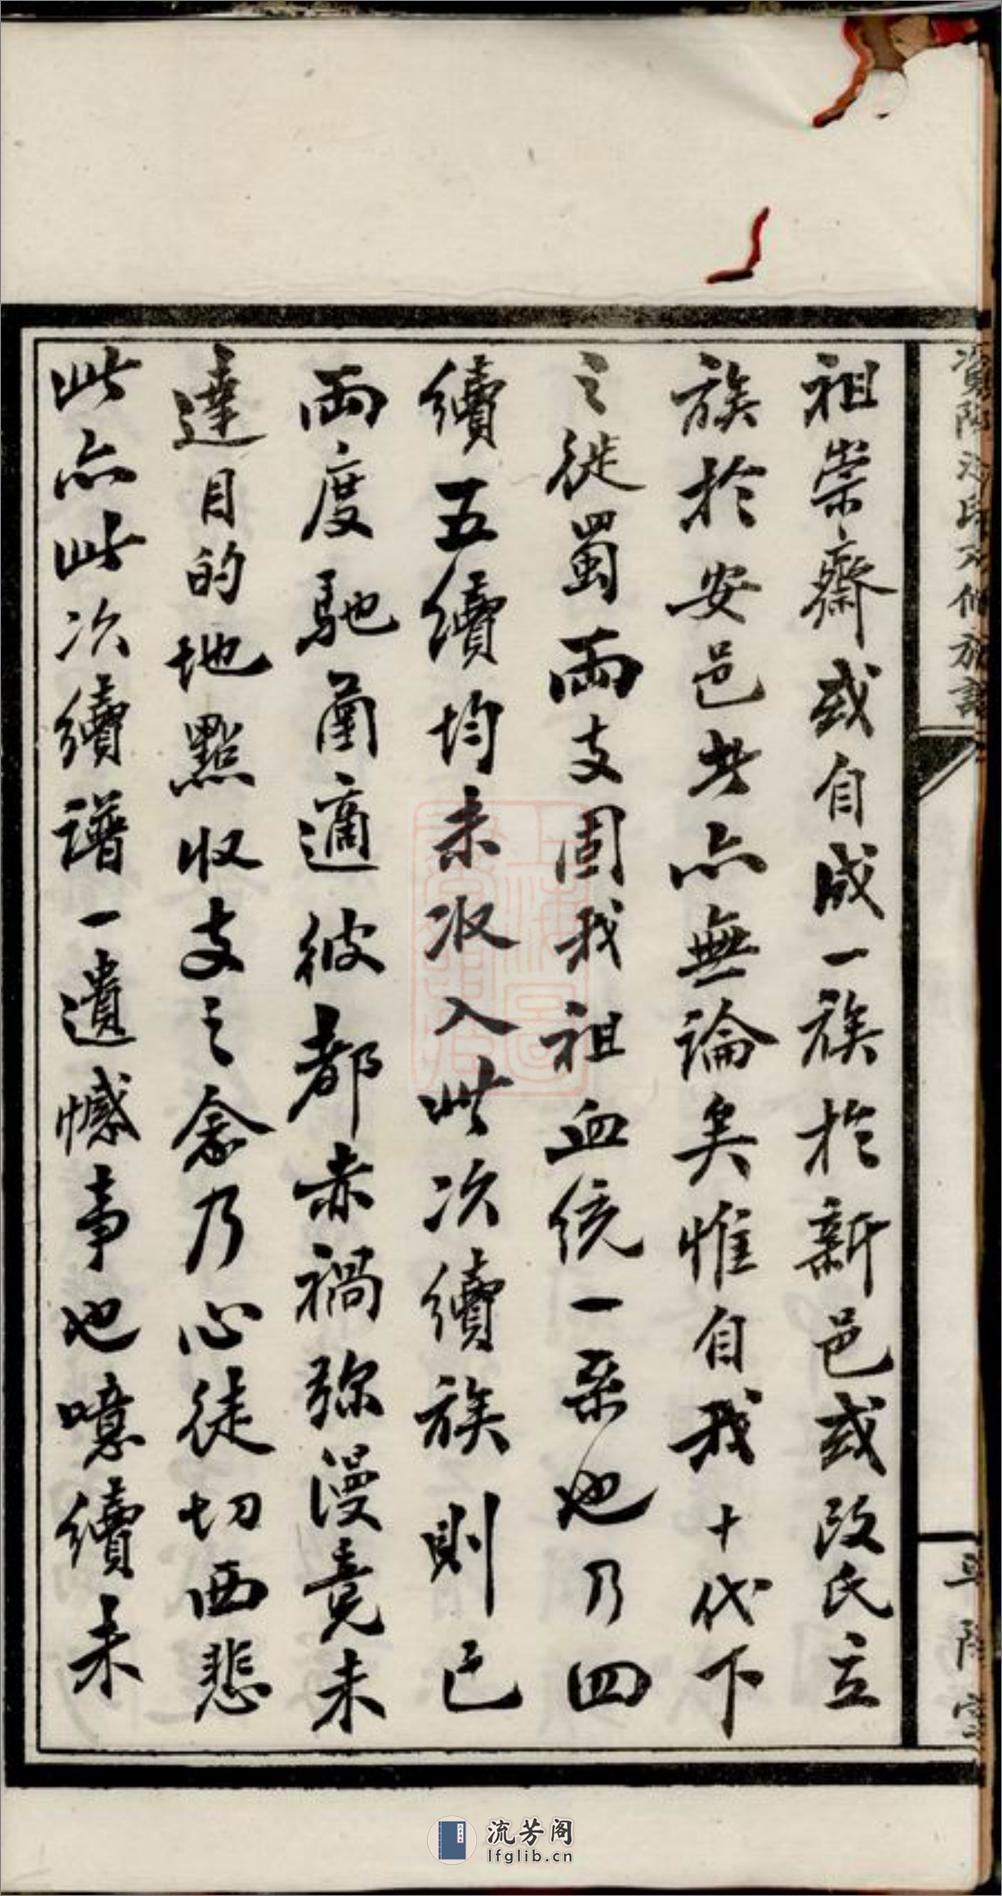 祖崇齋或自成一族於新邑或改氏立
族於安邑此亦無論矣惟自我十代下
之徙蜀兩支固我祖血統一系也乃四
續五續均未收入此次續族則已
兩度馳蘭適彼都赤禍弥漫竟未
達目的地點收支之念乃心徒切西悲
此亦此次續譜一遺憾事也噫續未
流芳阁
lfglib.cn